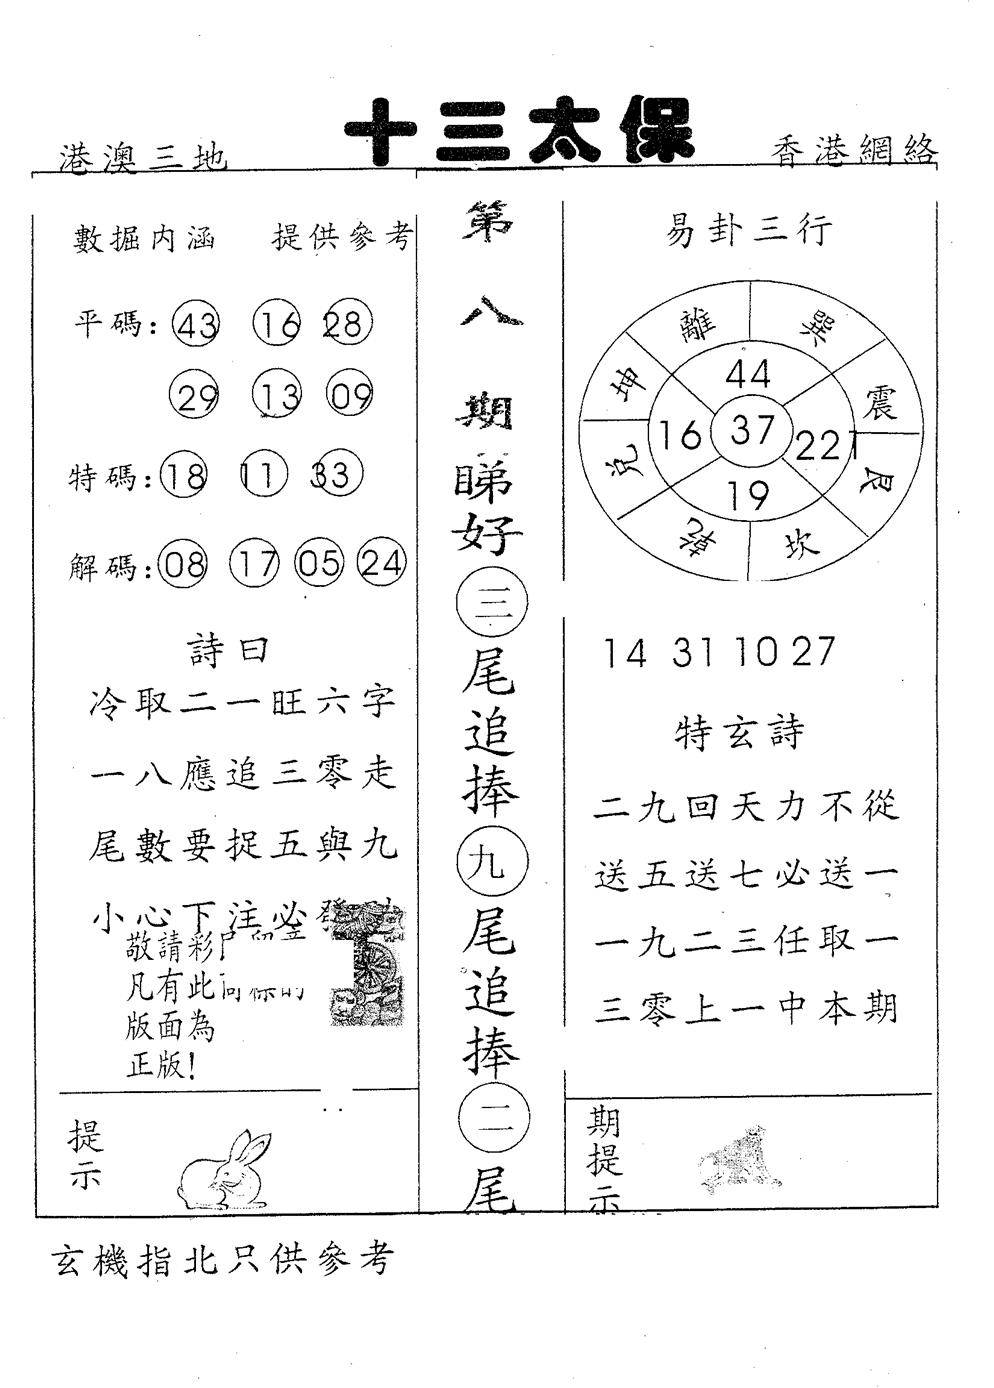 十三太保
港澳三地
香港網絡
數据内涵 提供參考
平碼: 43 16 28
29 13 09
特碼: 18 11 33
解碼: 08 17 05 24
詩曰
冷取二一旺六字
一八應追三零走
尾數要捉五與九
小心下注必發
敬請彩
凡有此
版面為
正版!
提示
第八期
睇好三尾追捧九尾追捧二尾
易卦三行
離 巽
坤 44 震
兑 16 37 221 艮
19
乾 坎
14 31 10 27
特玄詩
二九回天力不從
送五送七必送一
一九二三任取一
三零上一中本期
期提示
玄機指北只供參考